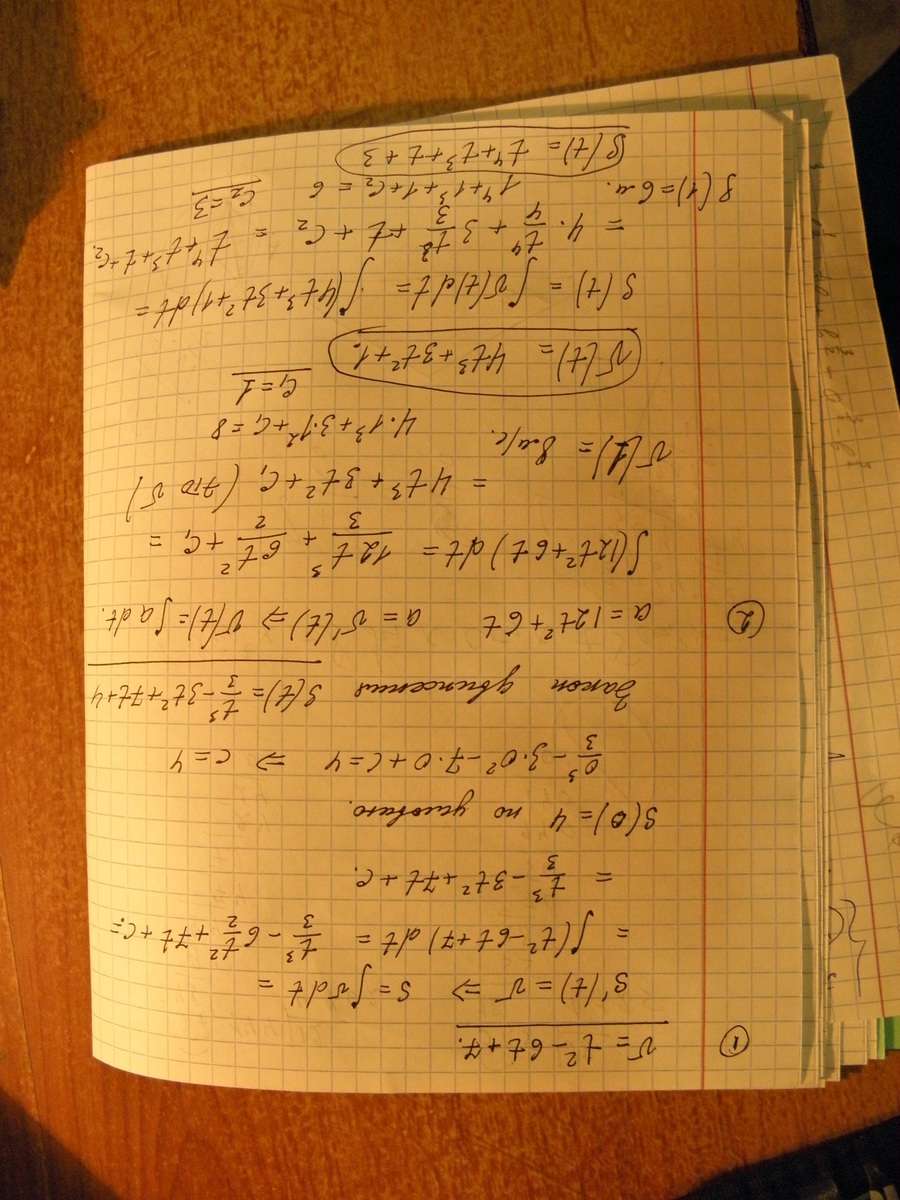 ① v = t² - 6t + 7.
S'(t) = v ⇒ S = ∫ v dt =
= ∫(t² - 6t + 7) dt = t³/3 - 6 t²/2 + 7t + c =
= t³/3 - 3t² + 7t + c.
S(0) = 4 по условию.
0³/3 - 3·0² - 7·0 + c = 4 ⇒ c = 4
Закон движения S(t) = t³/3 - 3t² + 7t + 4
② a = 12t² + 6t a = v'(t) ⇒ v(t) = ∫ a dt.
∫(12t² + 6t) dt = 12t³/3 + 6t²/2 + C₁ =
= 4t³ + 3t² + C₁ (это v)
v(1) = 8 м/с. 4·1³ + 3·1² + C₁ = 8
C₁ = 1
v(t) = 4t³ + 3t² + 1.
S(t) = ∫ v(t) dt = ∫(4t³ + 3t² + 1) dt =
= 4· t⁴/4 + 3 t³/3 + t + C₂ = t⁴ + t³ + t + C₂.
S(1) = 6 м. 1⁴ + 1³ + 1 + C₂ = 6 C₂ = 3
S(t) = t⁴ + t³ + t + 3